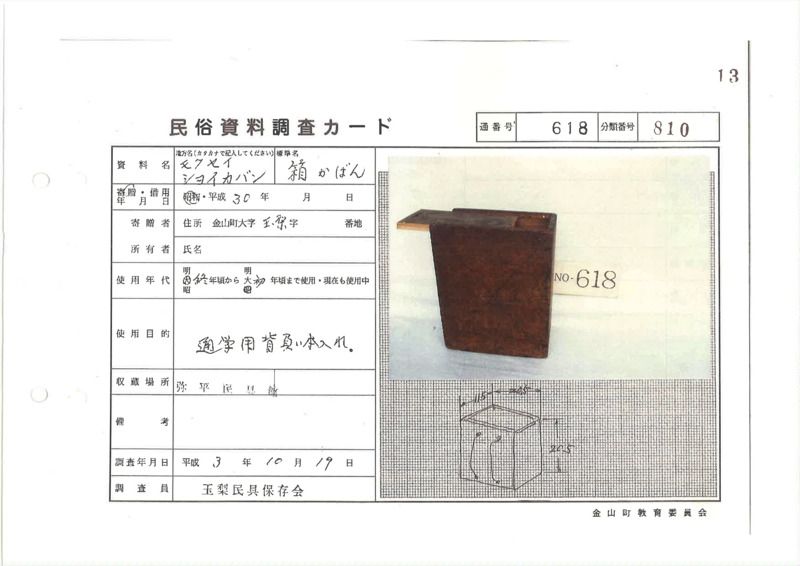 13
民俗資料調査カード
通番号 618 分類番号 810
資料名
地方名(カタカナで記入してください)
モクセイ
ショイカバン
標準名
箱かばん
寄贈・借用
年月日
昭和・平成 30 年 月 日
寄贈者
住所 金山町大字 玉梨 字 番地
所有者
氏名
使用年代
明
大 終 年頃から
昭
明
大 初 年頃まで使用・現在も使用中
昭
使用目的
通学用背負い本入れ。
収蔵場所
弥平民具館
備考
調査年月日
平成 3 年 10 月 19 日
調査員
玉梨民具保存会
NO-618
11.5
20.5
金山町教育委員会